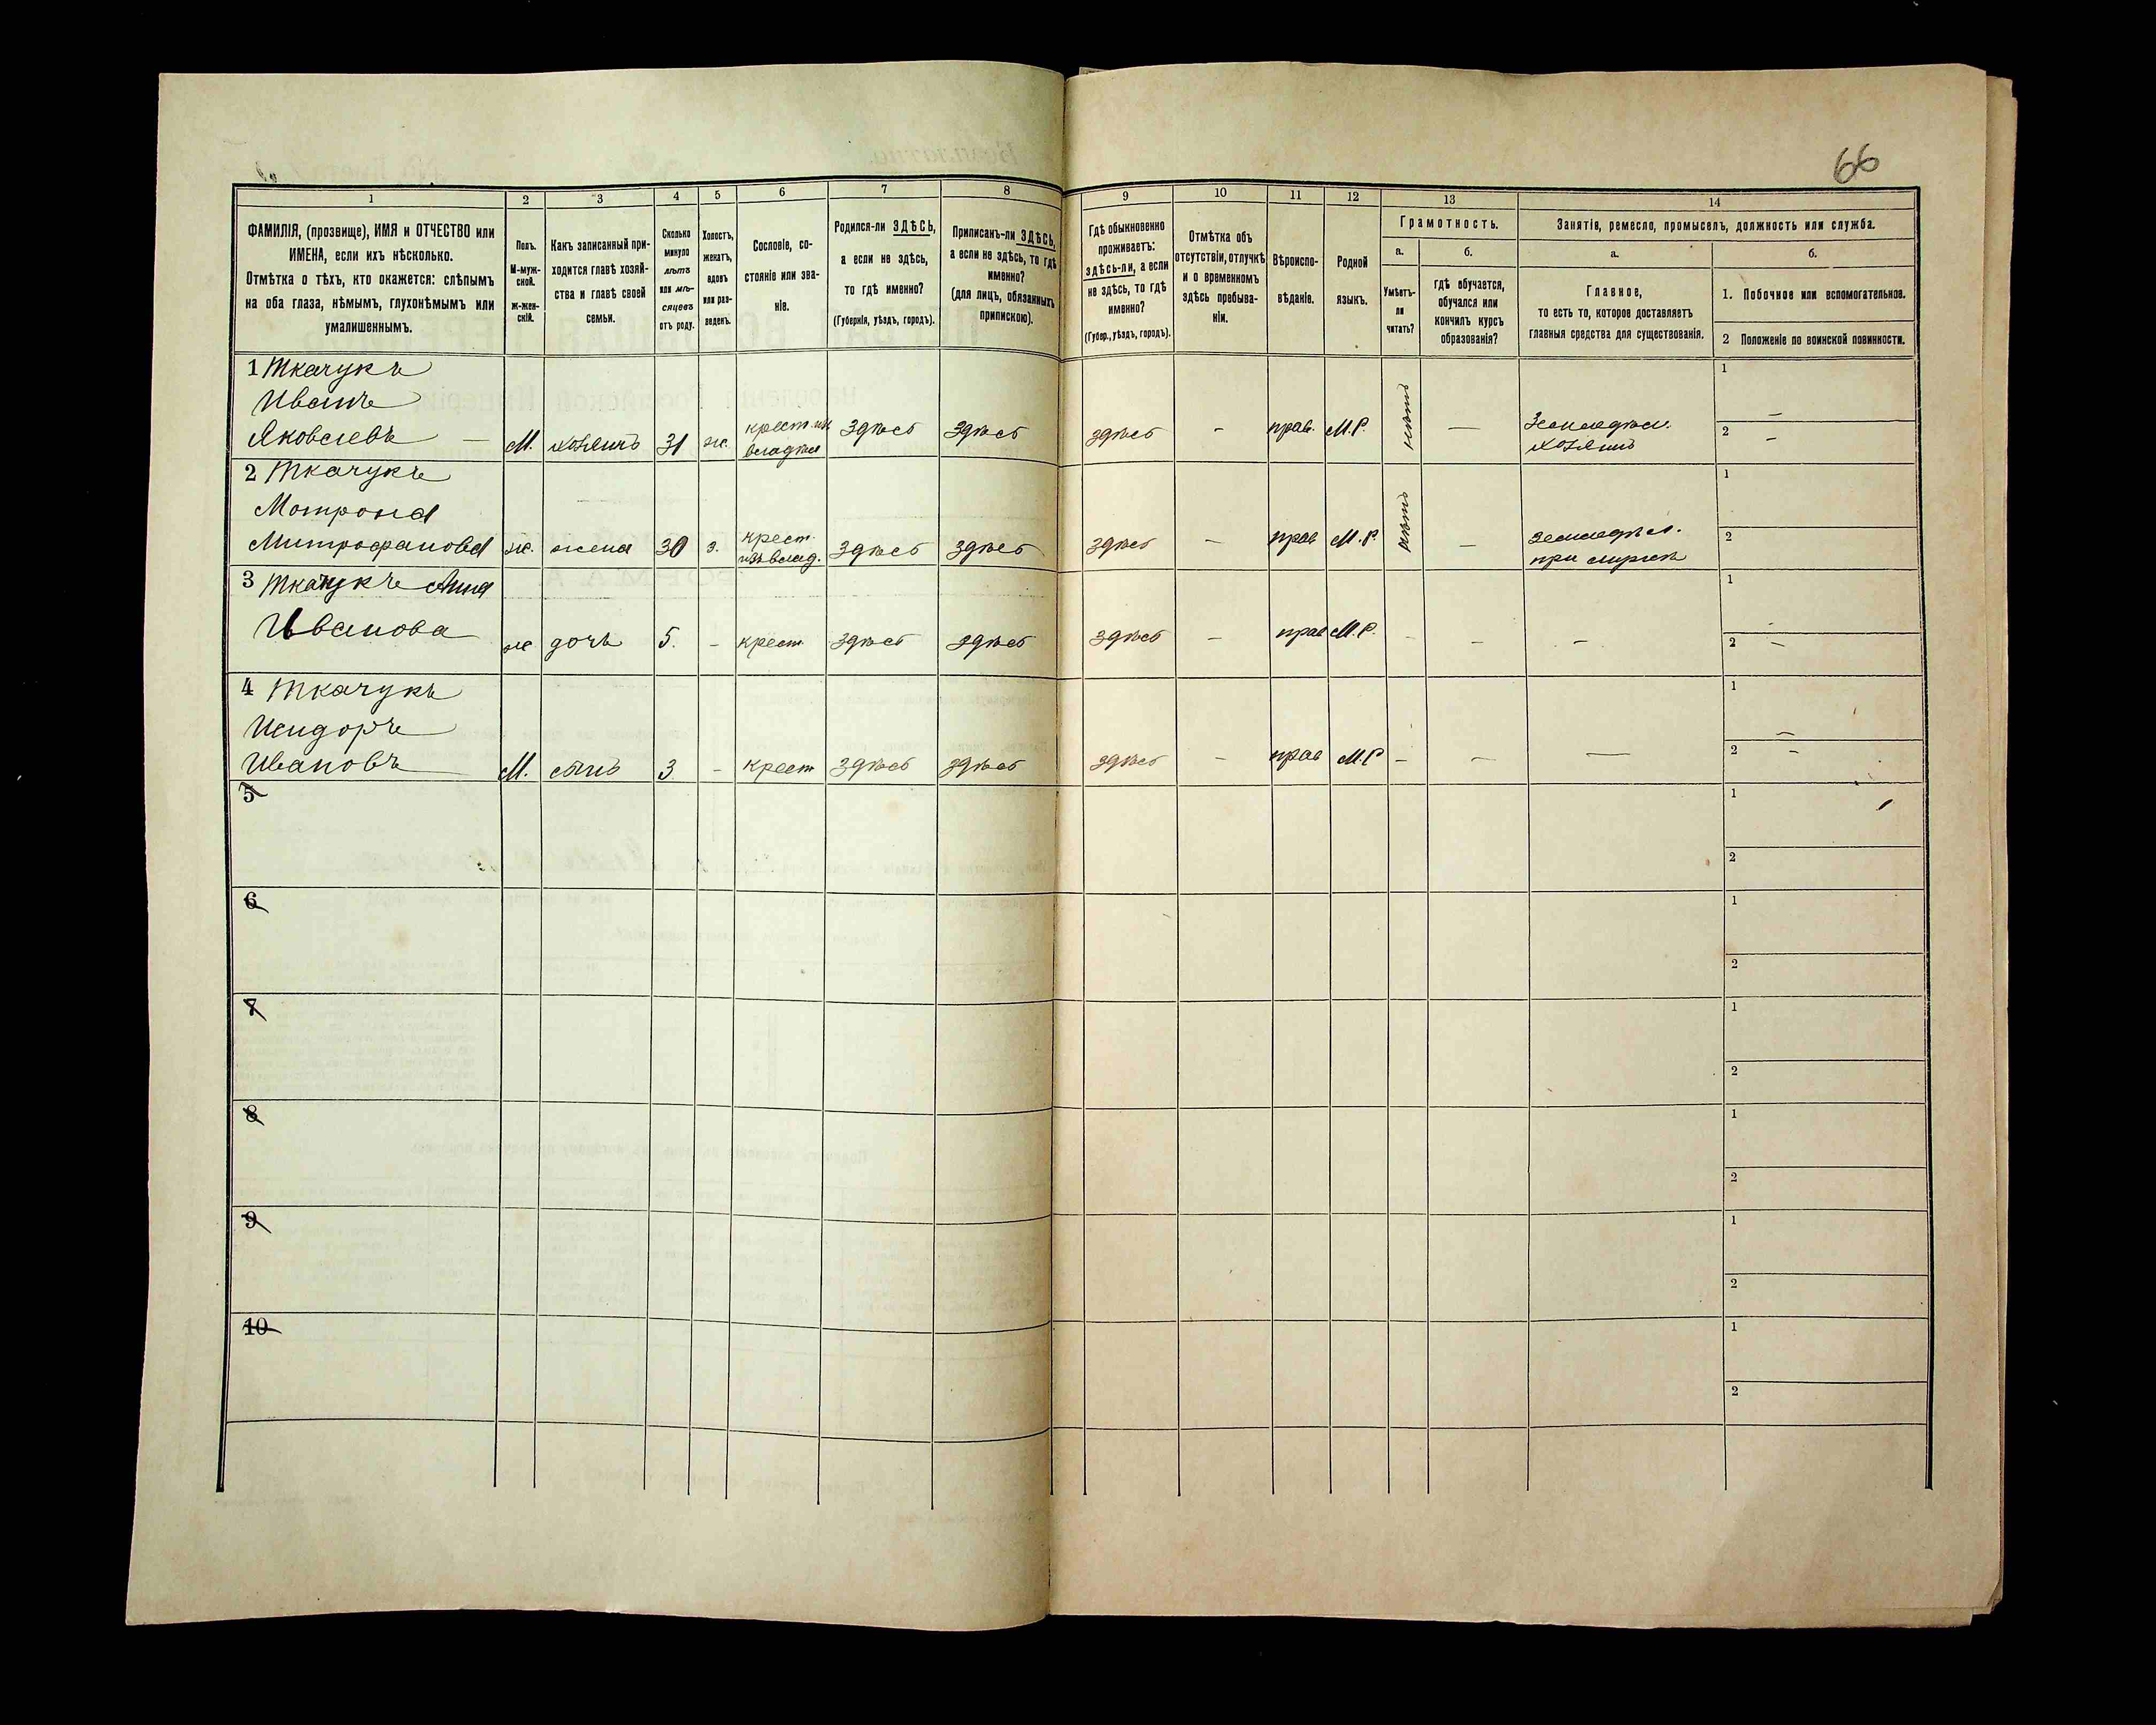 66
1
2
3
4
5
6
7
8
9
10
11
12
13
14
ФАМИЛІЯ, (прозвище), ИМЯ и ОТЧЕСТВО или
ИМЕНА, если ихъ нѣсколько.
Отмѣтка о тѣхъ, кто окажется: слѣпымъ
на оба глаза, нѣмымъ, глухонѣмымъ или
умалишеннымъ.
Полъ.
М-муж-
ской.
ж-жен-
скій.
Какъ записанный при-
ходится главѣ хозяй-
ства и главѣ своей
семьи.
Сколько
минуло
лѣтъ
или мѣ-
сяцевъ
отъ роду.
Холостъ,
женатъ,
вдовъ
или раз-
веденъ.
Сословіе, со-
стояніе или зва-
ніе.
Родился-ли ЗДѢСЬ,
а если не здѣсь,
то гдѣ именно?
(Губернія, уѣздъ, городъ).
Приписанъ-ли ЗДѢСЬ,
а если не здѣсь, то гдѣ
именно?
(для лицъ, обязанныхъ
припискою).
Гдѣ обыкновенно
проживаетъ:
здѣсь-ли, а если
не здѣсь, то гдѣ
именно?
(Губер., уѣздъ, городъ).
Отмѣтка объ
отсутствіи, отлучкѣ
и о временномъ
здѣсь пребыва-
ніи.
Вѣроиспо-
вѣданіе.
Родной
языкъ.
Грамотность.
а.
Умѣетъ-
ли
читать?
б.
гдѣ обучается,
обучался или
кончилъ курсъ
образованія?
Занятія, ремесло, промыселъ, должность или служба.
а.
Главное,
то есть то, которое доставляетъ
главныя средства для существованія.
б.
1. Побочное или вспомогательное.
2 Положеніе по воинской повинности.
1 Ткачукъ
Иванъ
Яковлевъ — М. хозяинъ 31 ж. здѣсь здѣсь здѣсь - прав. М.Р. нѣтъ —
владѣл
Земледѣл.
хозяинъ
1 —
2 —
2 Ткачукъ
Мотрона
Митрофанова ж. жена 30 з. крест. здѣсь здѣсь здѣсь - прав М.Р. нѣтъ —
изъ влад.
земледѣл.
при мужѣ
1
2
3 Ткачукъ Анна
Иванова ж дочь 5. - крест здѣсь здѣсь здѣсь - прав М.Р. - - -
1 -
2 -
4 Ткачукъ
Исидоръ
Ивановъ М. сынъ 3 - крест здѣсь здѣсь здѣсь - прав М.Р - - —
1 —
2 -
5
1
2
6
1
2
7
1
2
8
1
2
9
1
2
10
1
2